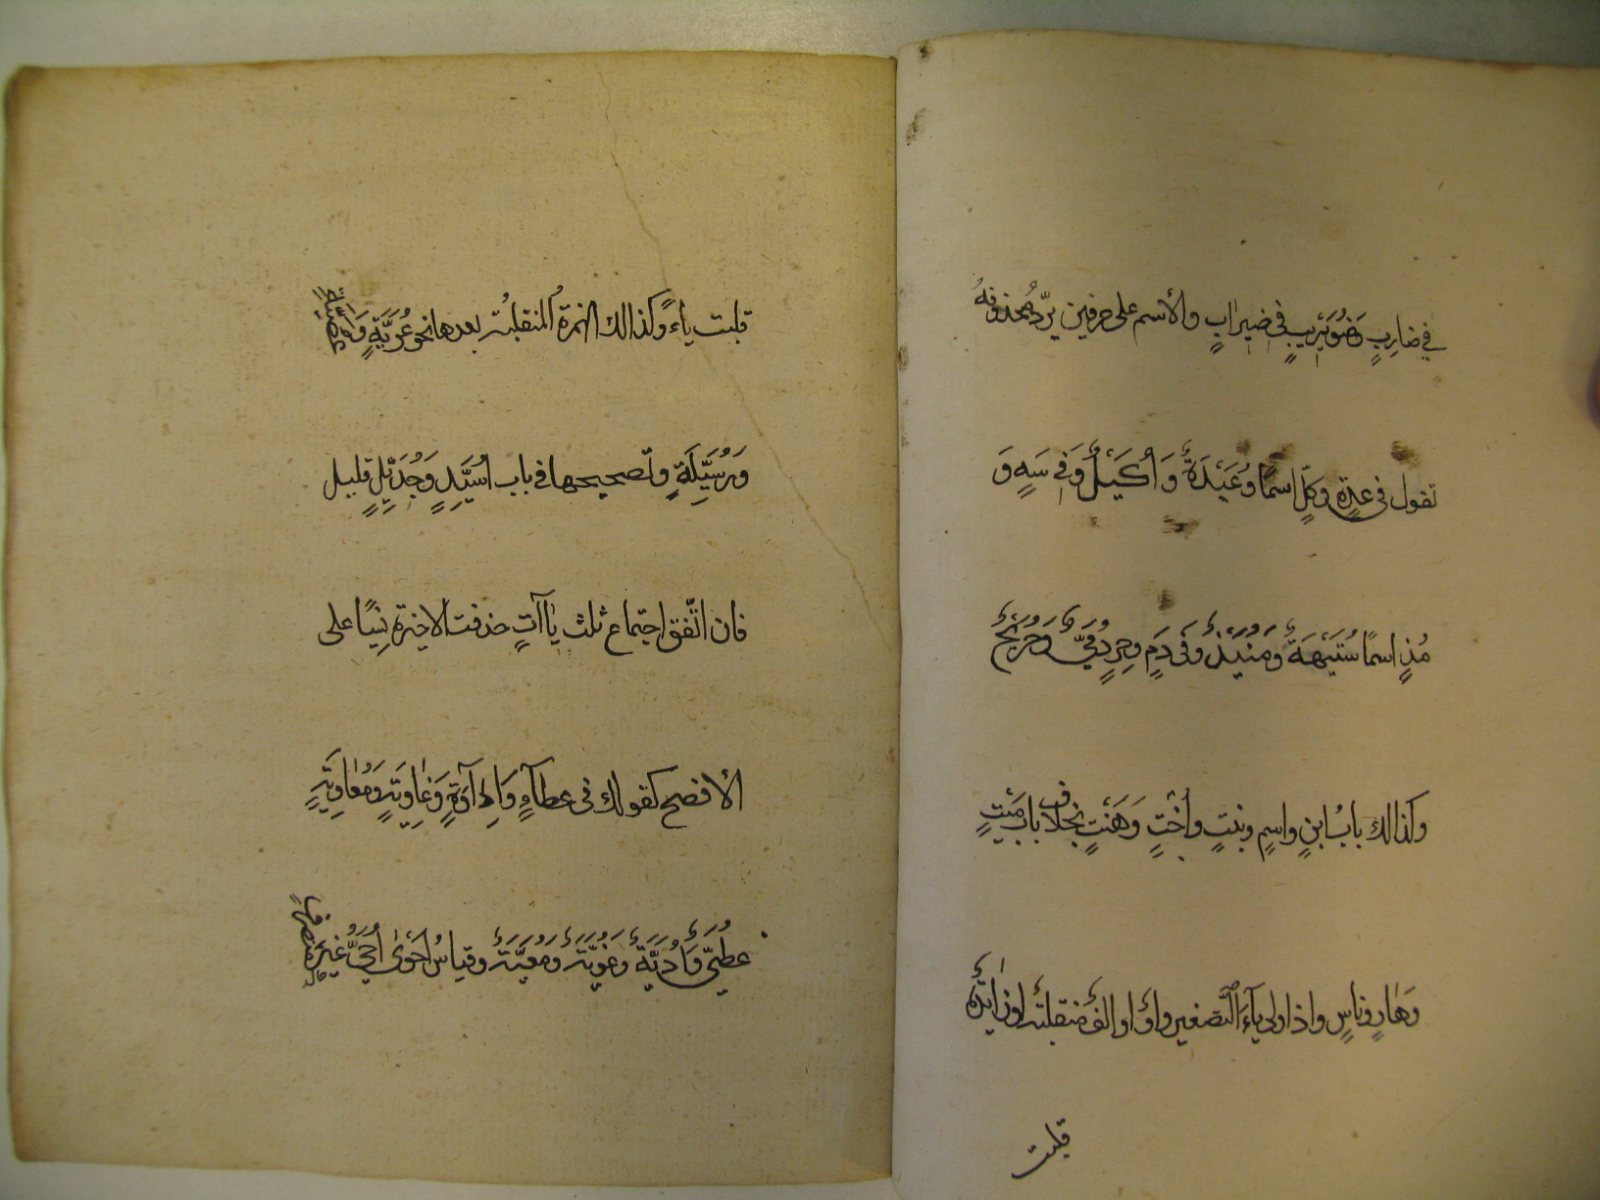 في ضارِبٍ وَضُوَيْرِيبٍ في ضِيرابٍ والأسم على حرفين يردّ محذوفهُ
تقول في عدةٍ وكلٍ اسمًا وُعَيْدَةٌ وَأُكَيْلٌ وَفي سَهٍ وَ
مُذٍ اسمًا سُتَيْهَةٌ ومُنَيْذٌ وَفى دَمٍ وحِرٍ دُمَيٌّ وَحُرَيْحٌ
وكذالك بابُ ابنٍ واسمٍ وبنتٍ وأختٍ وَهَنْتٍ بخلاف باب مَيْتٍ
وَهَارٍ وناسٍ واذا ولى ياءَ التَّصغير واوٌ او الفٌ منقلبَة اوزَايدَةٌ
قلبت
قلبت ياءً وكذالك الهمزة المنقلبَة بعدها نحو عُرَيَّةٍ وَ
وَرُسَيِّلَةٍ وتصحيحها في باب اُسَيِّدٍ وَجُدَيِّلٍ قليل
فان اتَّفق اجتماع ثلث ياآتٍ حذفت الاخيرة نِسيًا على
الأفصح كقولك في عطآءٍ وَاِدَاوَةٍ وَغاوِيَةٍ وَمُعَاوِيَةٍ
عُطَيٌّ وَاُدَيَّةٌ وَغُوَيَّةٌ وَمُعَيَّةٌ وقياسُ اَحْوٰى اُحَيُّ غير